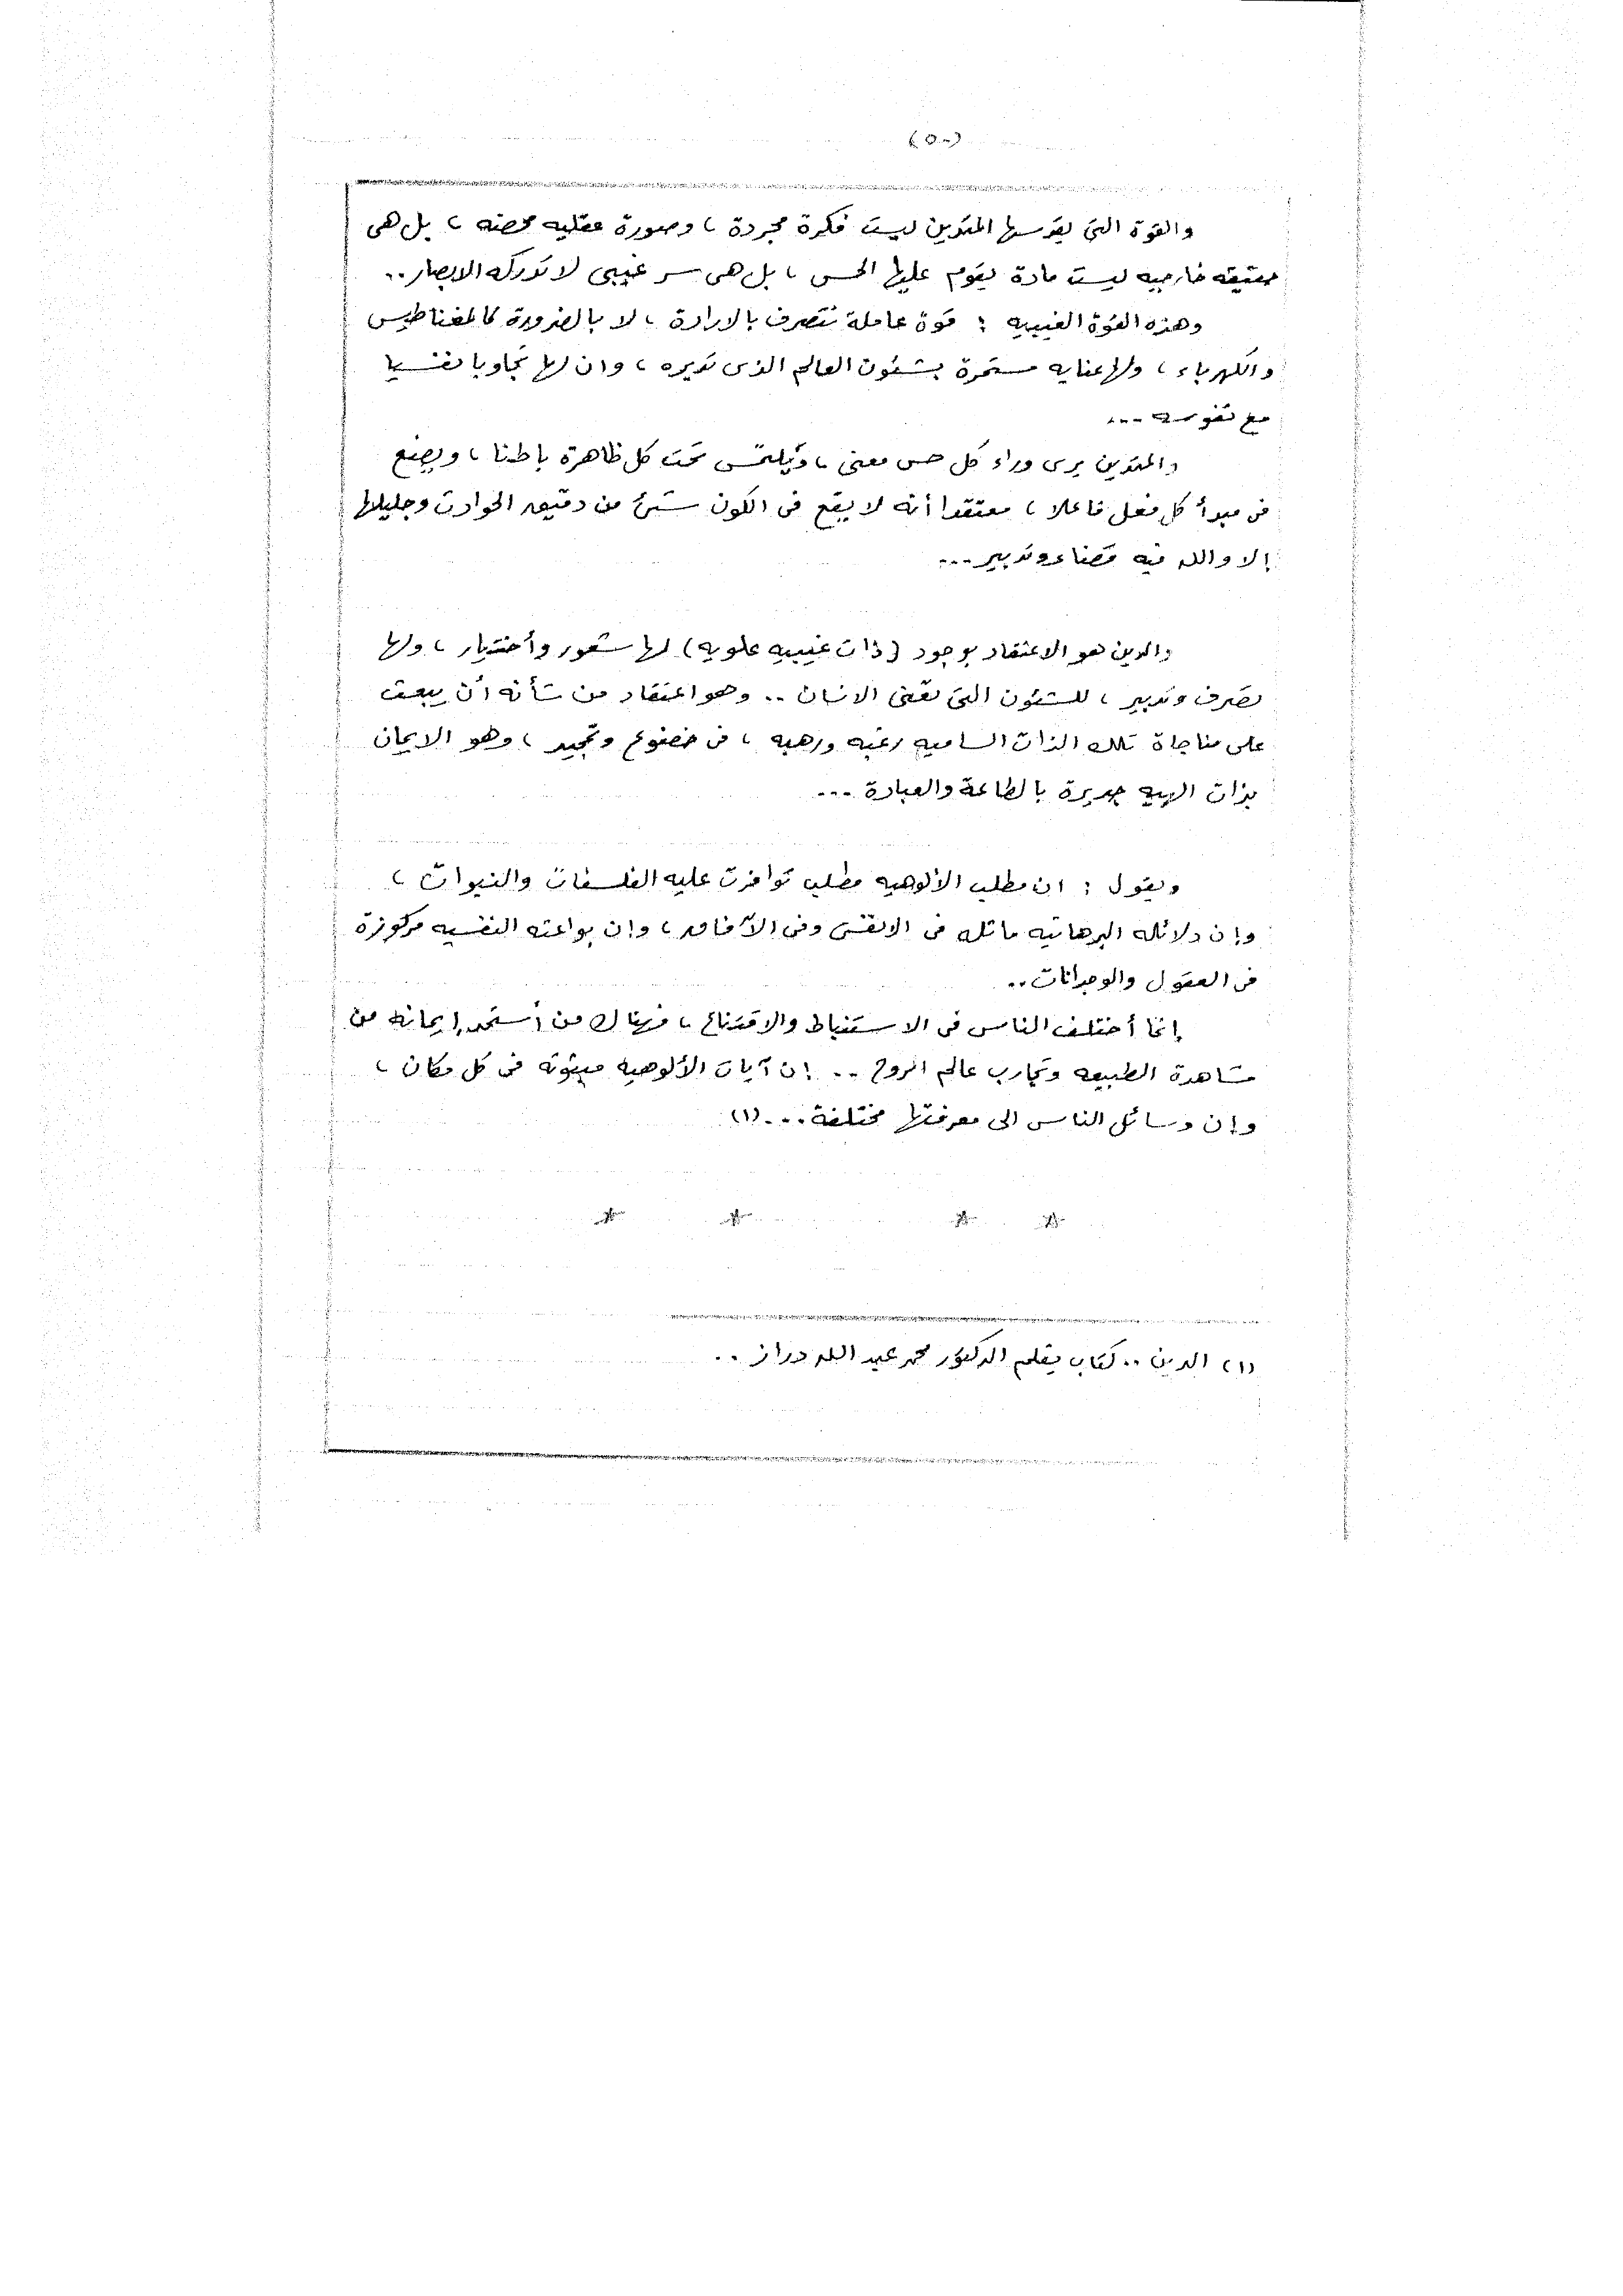 (٥٠)
والقوة التى يقدسها المتدين ليست فكرة مجردة ، وصورة عقليه محضه ، بل هى
حقيقه خارجيه ليست مادة يقوم عليها الحس ، بل هى سر غيبى لا تدركه الابصار ..
وهذه القوة الغيبيه : قوة عاملة تتصرف بالارادة ، لا بالضرورة كالمغناطيس
والكهرباء ، ولها عنايه مستمرة بشئون العالم الذى تديره ، وان لها تجاوبا نفسيا
مع نفوسه ...
والمتدين يرى وراء كل حس معنى ، ويلتمس تحت كل ظاهرة باطنا ، ويضع
فى مبدأ كل فعل فاعلا ، معتقدا أنه لا يقع فى الكون شئ من دقيق الحوادث وجليلها
إلا والله فيه قضاء وتدبير ...
والدين هو الاعتقاد بوجود (ذات غيبيه علويه) لها شعور وأختيار ، ولها
تصرف وتدبير ، للشئون التى تعنى الانسان .. وهو اعتقاد من شأنه أن يبعث
على مناجاة تلك الذات الساميه رغبه ورهبه ، فى خضوع وتمجيد ، وهو الايمان
بذات الهيه جديرة بالطاعة والعبادة ...
ويقول : ان مطلب الألوهيه مطلب توافرت عليه الفلسفات والنبوات ،
وإن دلائله البرهانيه ماثله فى الانفس وفى الآفاق ، وان بواعثه النفسيه مركوزة
فى العقول والوجدانات ..
إنما أختلف الناس فى الاستنباط والاقتناع ، فهناك من أستمد إيمانه من
مشاهدة الطبيعه وتجارب عالم الروح .. إن آيات الألوهيه مبثوثه فى كل مكان ،
وإن وسائل الناس الى معرفتها مختلفة ... (١)
* * * *
(١) الدين .. كتاب بقلم الدكتور محمد عبد الله دراز ..